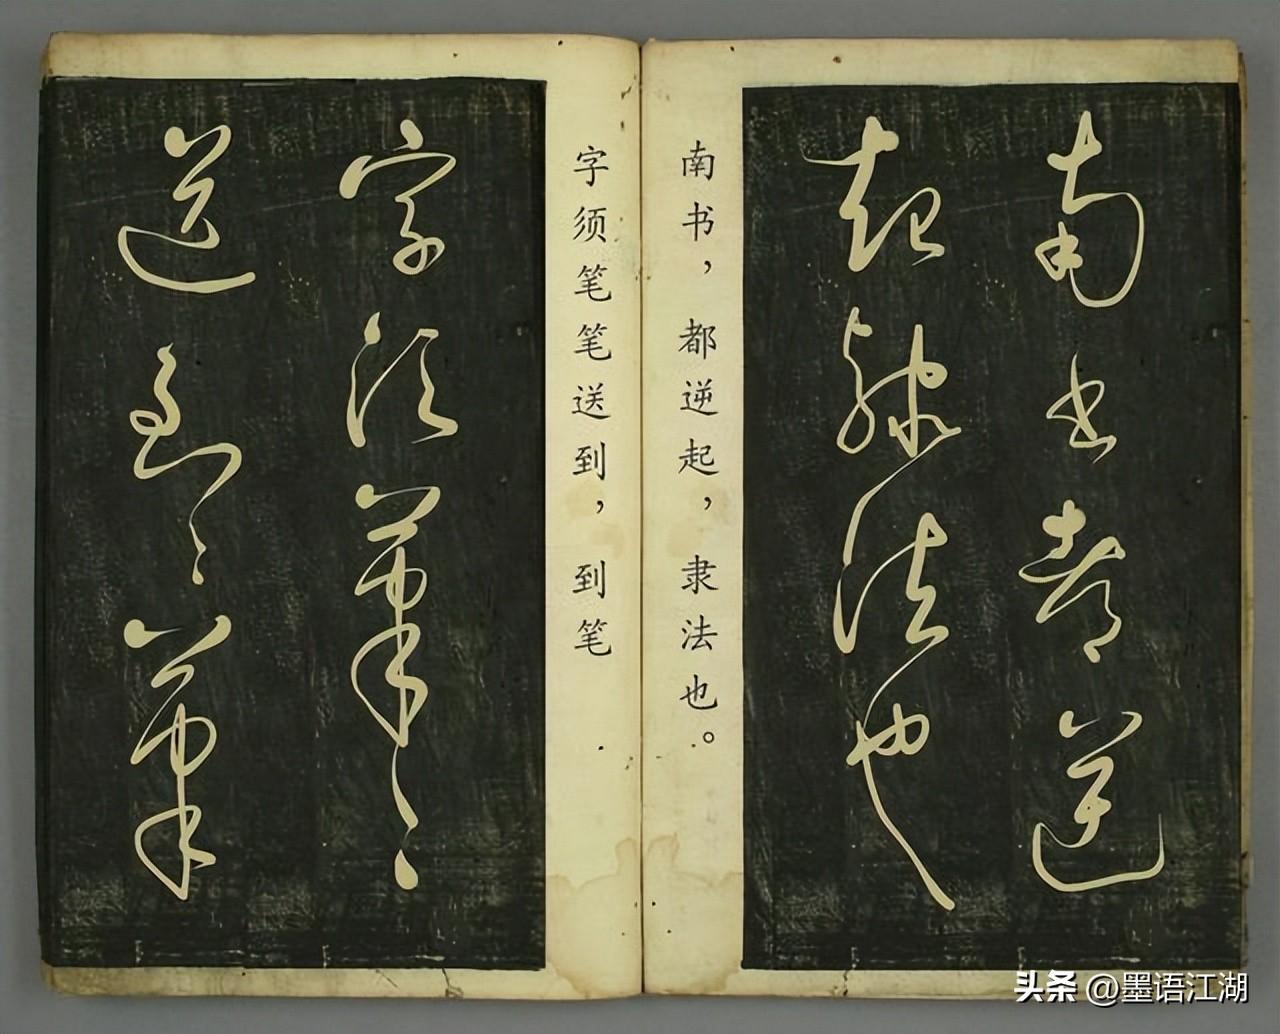 南書都逆
起隸法也
南书，都逆起，隶法也。
字须笔笔送到，到笔
字須筆〻
送到〻筆
头条 @墨语江湖